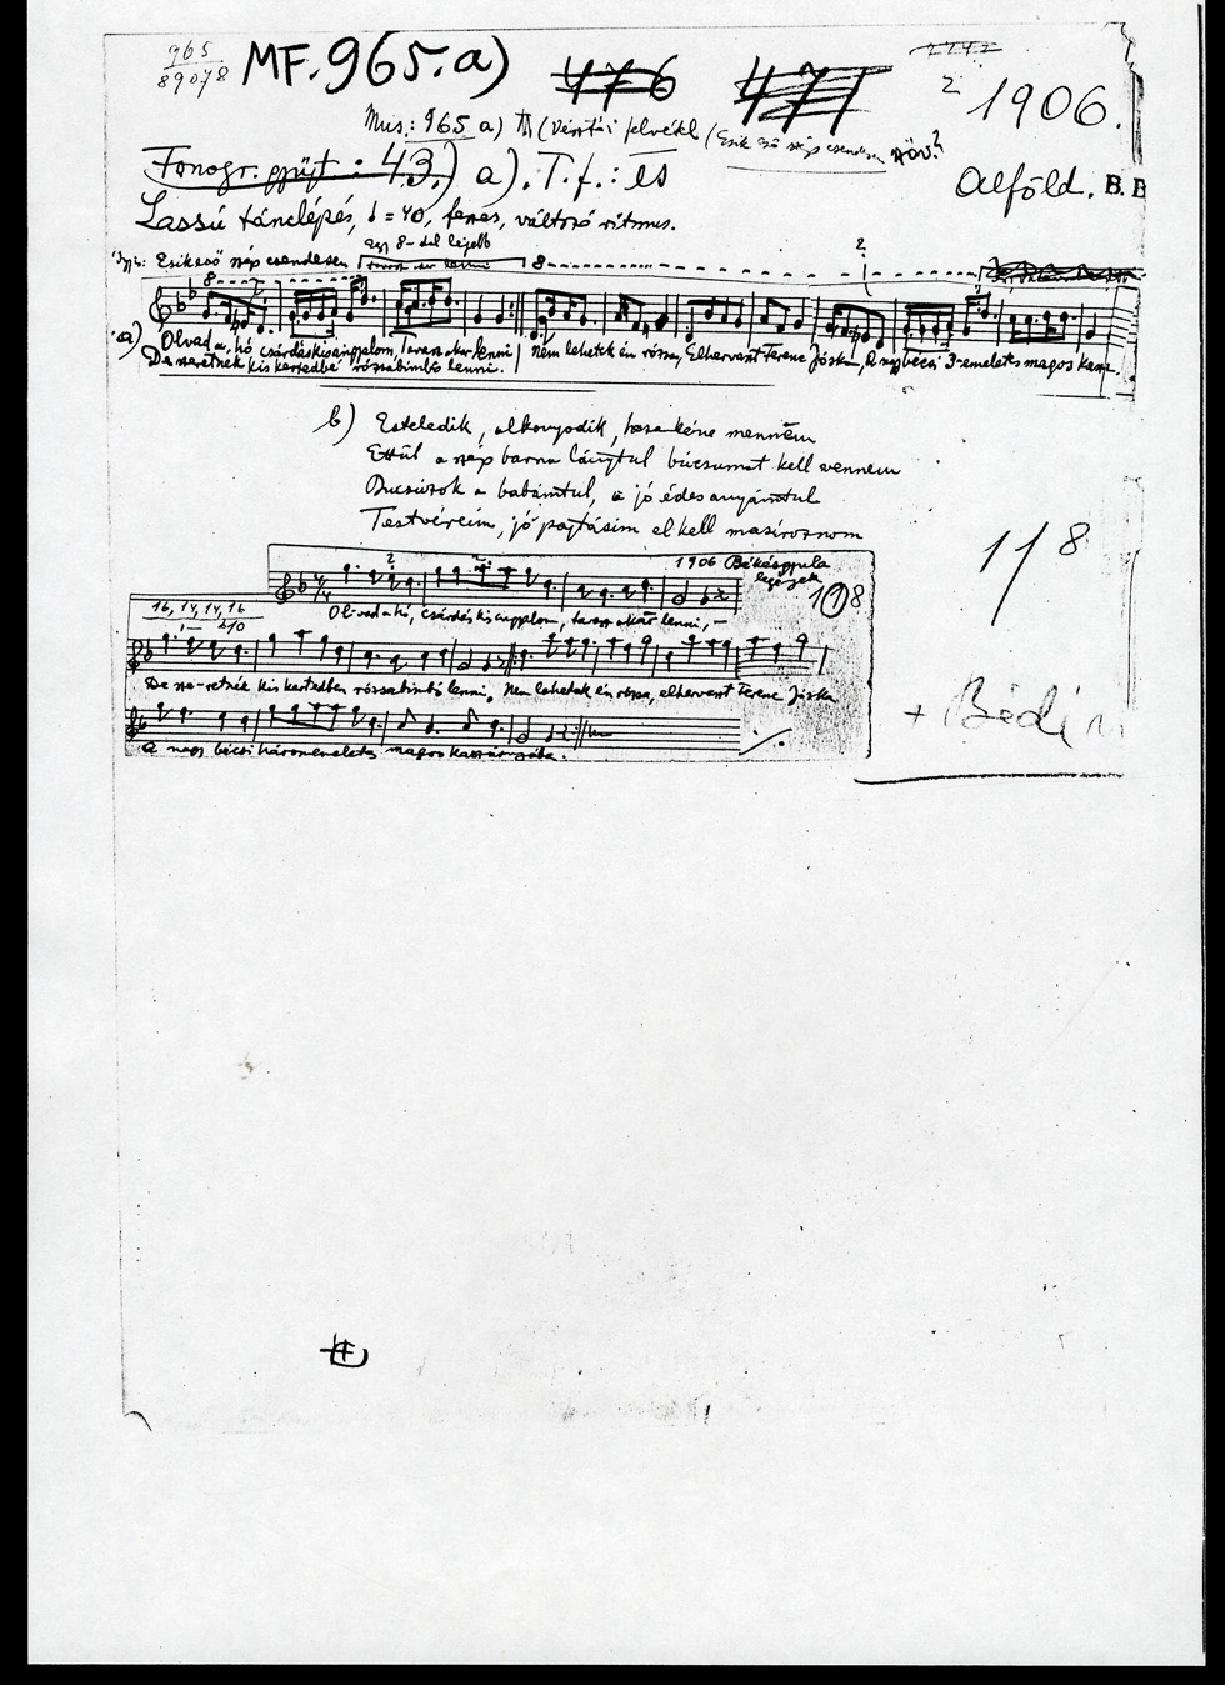 965
89078
MF. 965. a)
476
477
1906.
Mus.: 965 a)
Fonogr. gyüjt : 43.) a). T. f.: és
Alföld. B. B
Lassú tánclépés, = 40, feszes, változó ritmus.
egy 8-dal lejjebb
Esik eső szép csendesen
a) Olvad a hó, csárdás kis angyalom, Tavasz akar lenni
Nem lehetek én rózsa, Elhervaszt Ferenc Jóska, A nagy bécsi 3-emeletes magos
De szeretnék kis kertedbe rózsabimbó lenni.
b) Esteledik, alkonyodik, haza kéne mennem
Ettül a szép barna lánytul búcsumat kell vennem
Bucsúzok a babámtul, a jó édesanyámtul
Testvéreim, jó pajtásim el kell masíroznom
11 8
1906 Békésgyula
legények
1 1 8
16, 14, 14, 16
b10
Olvad a hó, csárdás kis angyalom, tavasz akar lenni, –
De sze-retnék kis kertedben rózsabimbó lenni, Nem lehetek én rózsa, elhervaszt Ferenc Jóska
A nagy bécsi háromemeletes magos kaszárnyába.
+ Bédi